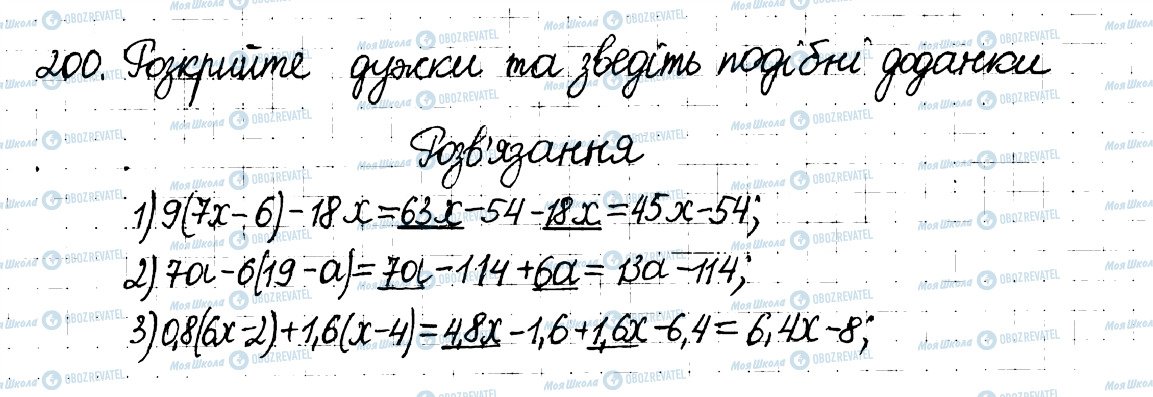 200. Розкрийте дужки та зведіть подібні доданки
Розв'язання
1) 9(7x-6)-18x=63x-54-18x=45x-54;
2) 7a-6(19-a)=7a-114+6a=13a-114;
3) 0,8(6x-2)+1,6(x-4)=4,8x-1,6+1,6x-6,4=6,4x-8;